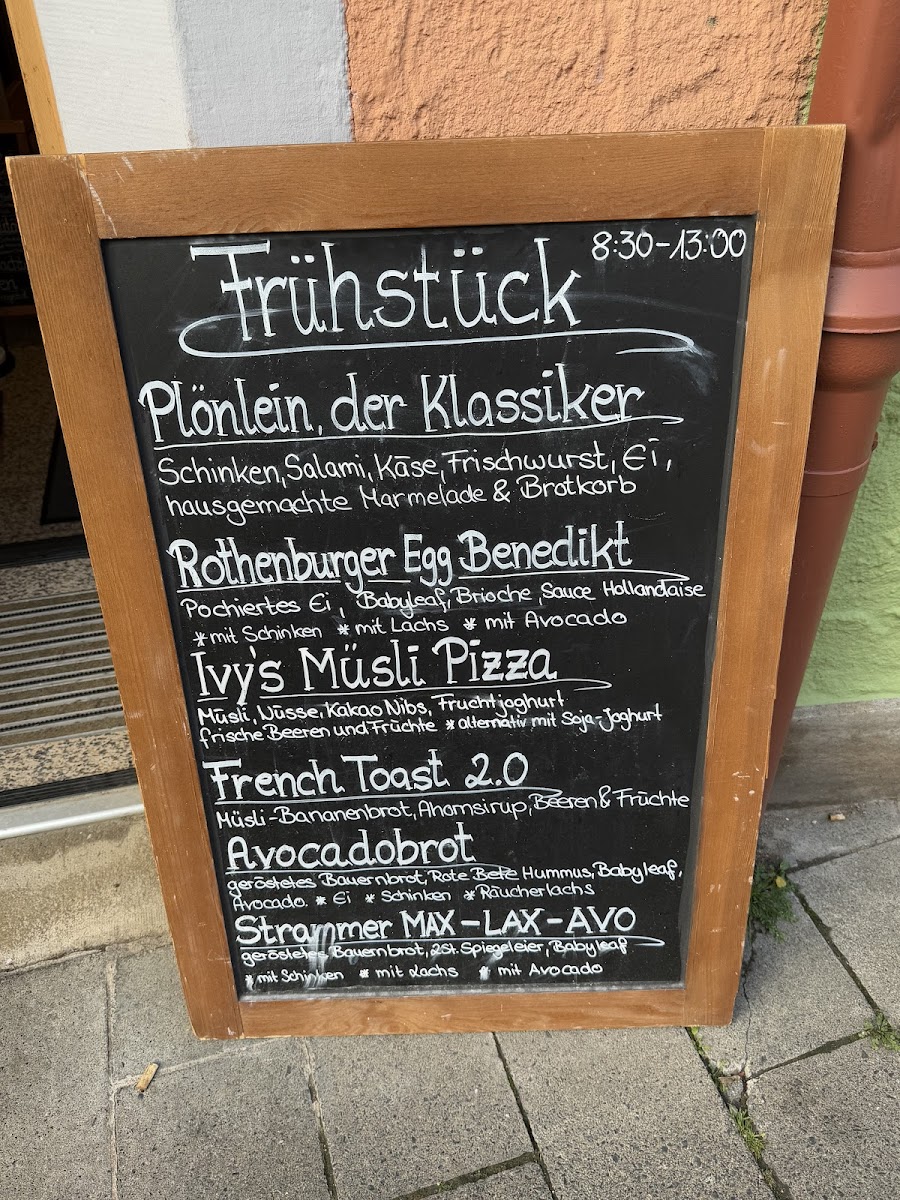 8:30-13:00
Frühstück
Plönlein, der Klassiker
Schinken, Salami, Käse, Frischwurst, Ei,
hausgemachte Marmelade & Brotkorb
Rothenburger Egg Benedikt
Pochiertes Ei, Babyleaf, Brioche, Sauce Hollandaise
*mit Schinken *mit Lachs *mit Avocado
Ivy's Müsli Pizza
Müsli, Nüsse, Kakao Nibs, Fruchtjoghurt
frische Beeren und Früchte *alternativ mit Soja-Joghurt
French Toast 2.0
Müsli-Bananenbrot, Ahornsirup, Beeren & Früchte
Avocadobrot
geröstetes Bauernbrot, Rote Bete Hummus, Babyleaf,
Avocado. *Ei *Schinken *Räucherlachs
Strammer MAX-LAX-AVO
geröstetes Bauernbrot, 2St. Spiegeleier, Babyleaf
*mit Schinken *mit Lachs *mit Avocado